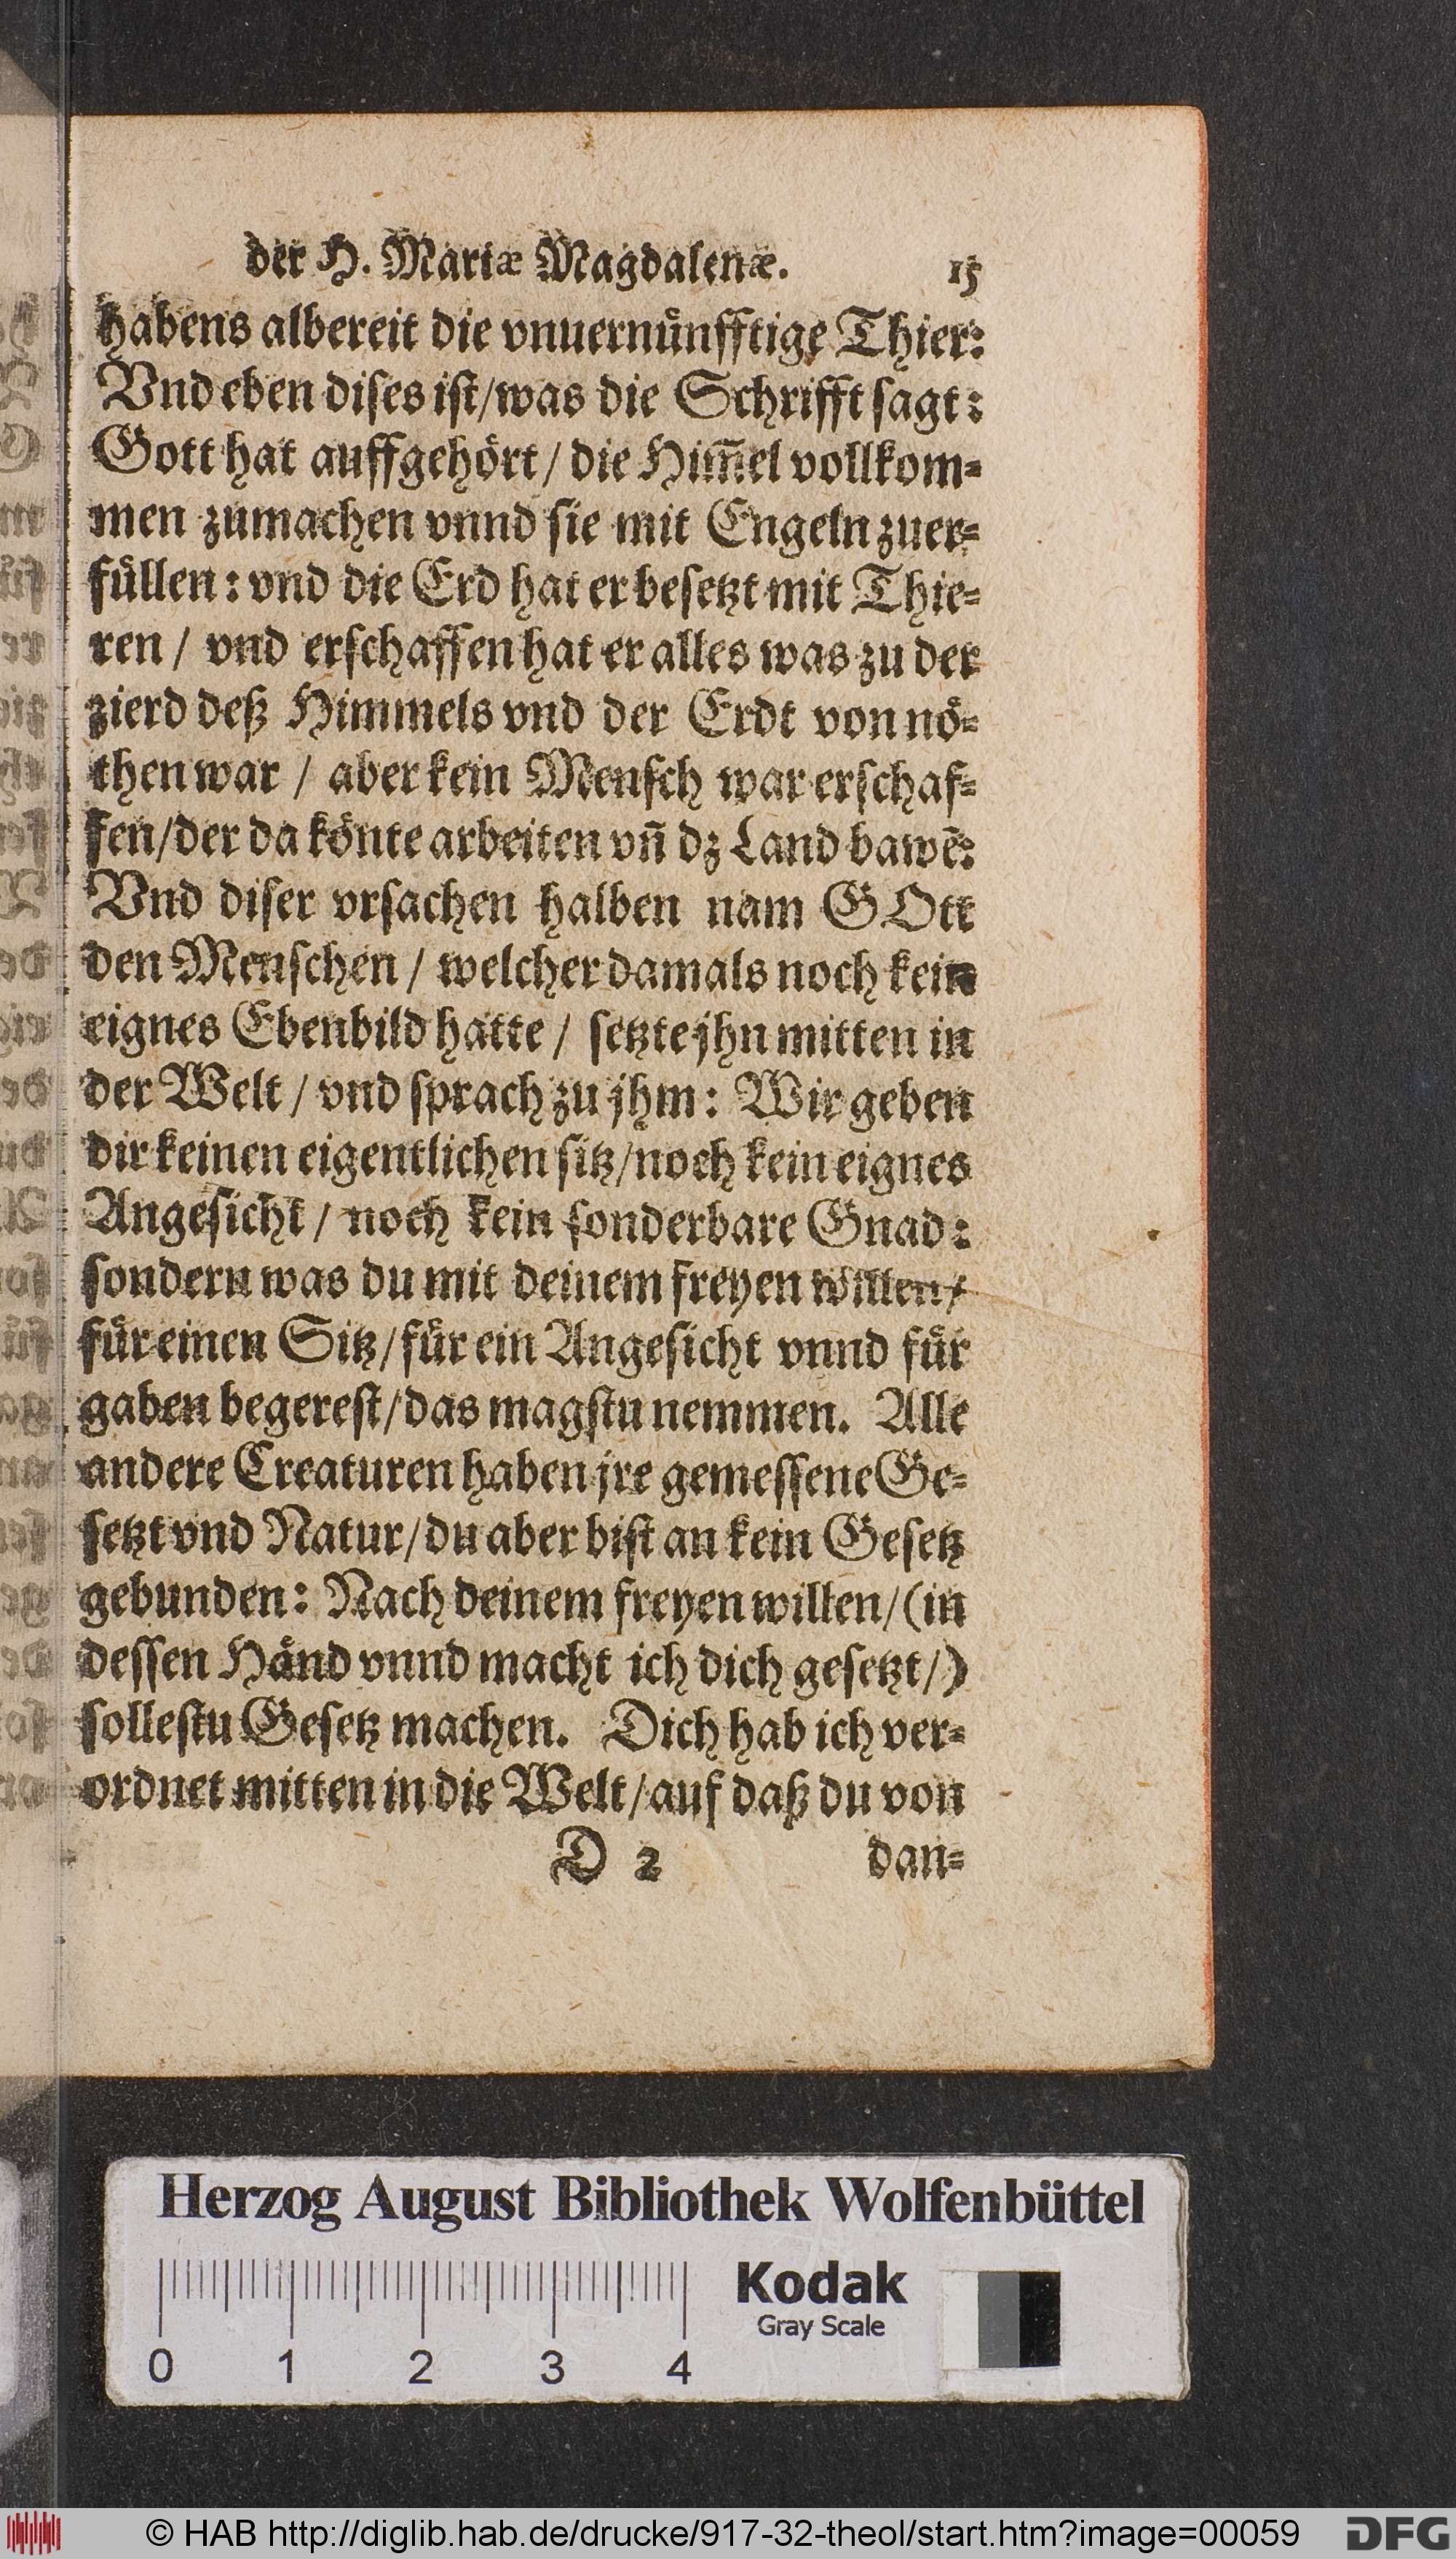 der H. Mariæ Magdalenæ. 15
habens albereit die vnuernünfftige Thier:
Vnd eben dises ist/was die Schrifft sagt:
Gott hat auffgehört/ die Him̃el vollkom=
men zumachen vnnd sie mit Engeln zuer=
füllen: vnd die Erd hat er besetzt mit Thie=
ren / vnd erschaffen hat er alles was zu der
zierd deß Himmels vnd der Erdt von nö=
then war / aber kein Mensch war erschaf=
fen/der da könte arbeiten vñ dz Land bawẽ:
Vnd diser vrsachen halben nam GOtt
den Menschen / welcher damals noch kein
eignes Ebenbild hatte / setzte jhn mitten in
der Welt / vnd sprach zu jhm: Wir geben
dir keinen eigentlichen sitz/noch kein eignes
Angesicht / noch kein sonderbare Gnad:
sondern was du mit deinem freyen willen/
für einen Sitz/für ein Angesicht vnnd für
gaben begerest/das magstu nemmen. Alle
andere Creaturen haben jre gemessene Ge=
setzt vnd Natur/du aber bist an kein Gesetz
gebunden: Nach deinem freyen willen/(in
dessen Händ vnnd macht ich dich gesetzt/)
sollestu Gesetz machen. Dich hab ich ver=
ordnet mitten in die Welt/auf daß du von
D 2 dan=
Herzog August Bibliothek Wolfenbüttel
Kodak
Gray Scale
0 1 2 3 4
© HAB http://diglib.hab.de/drucke/917-32-theol/start.htm?image=00059
DFG